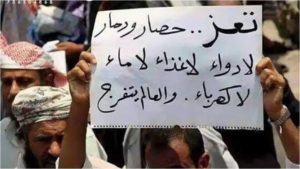 تعز .. حصار ودمار
لا دواء لا غذاء لا ماء
لا كهرباء .. والعالم يتفرج